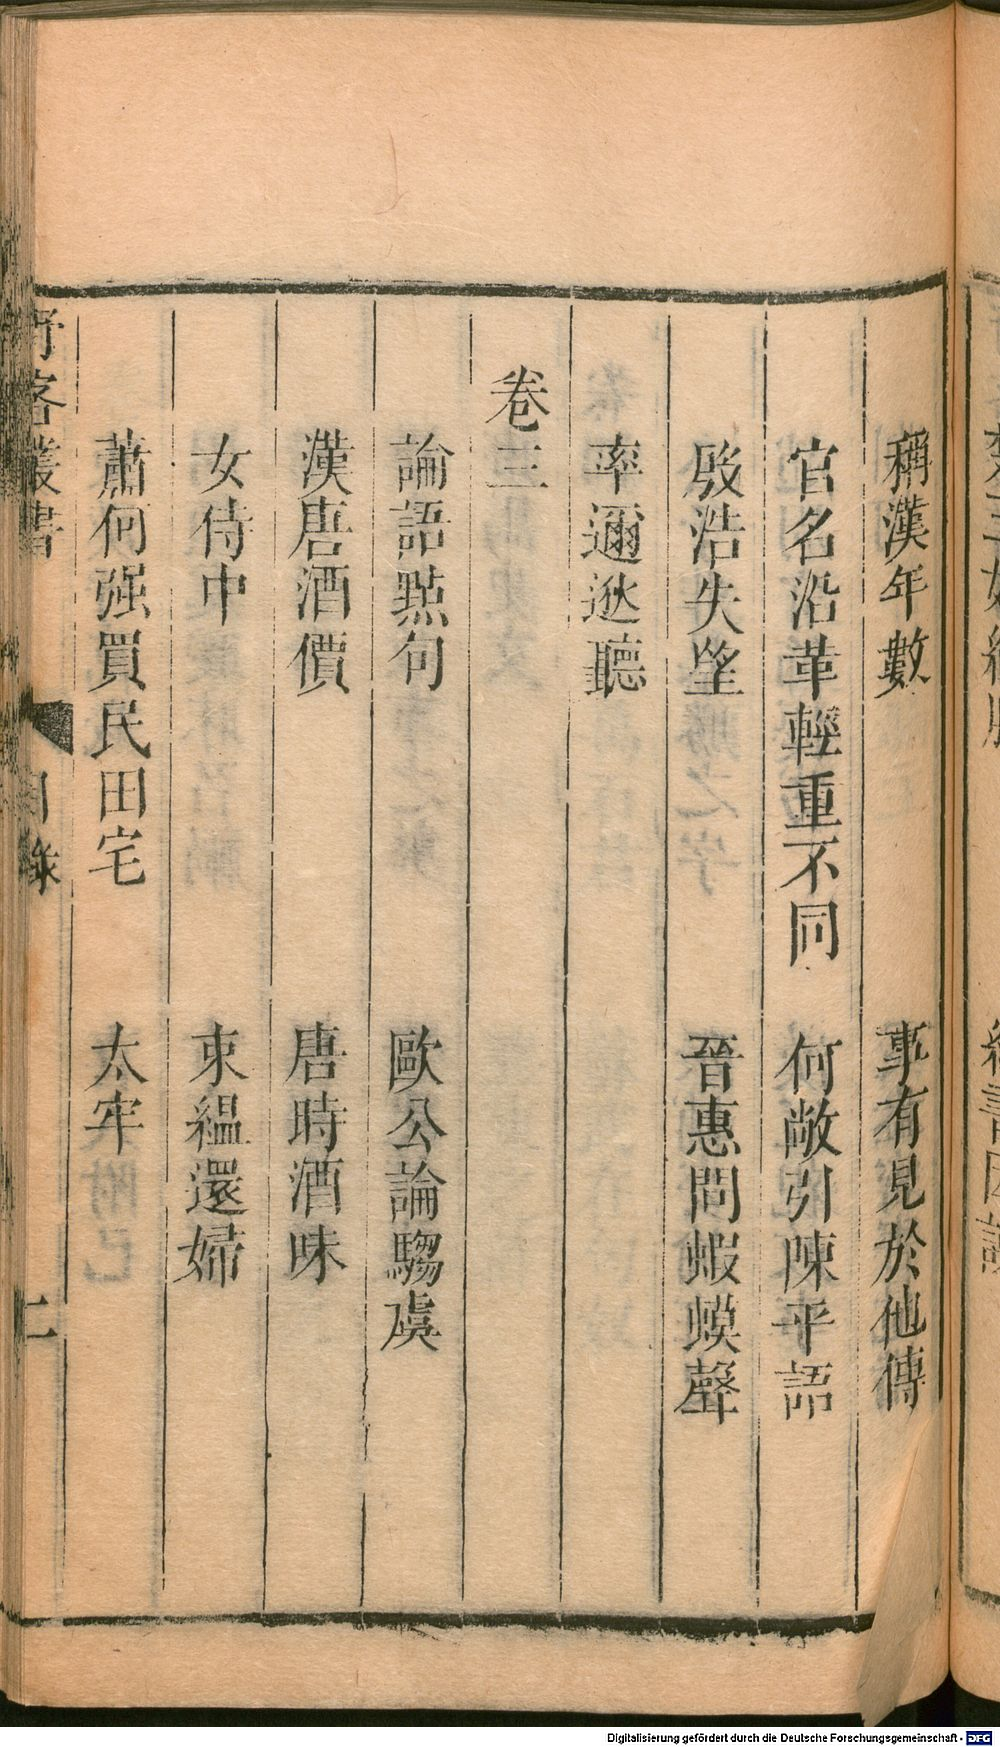 稱漢年數　事有見於他傳
官名沿革輕重不同　何敞引陳平語
殷浩失望　晉惠問蝦蟆聲
率邇逖聽
卷三
論語㸃句　歐公論騶虞
漢唐酒價　唐時酒味
女侍中　束緼還婦
蕭何强買民田宅　太牢
野客叢書　目錄　二
Digitalisierung gefördert durch die Deutsche Forschungsgemeinschaft - DFG